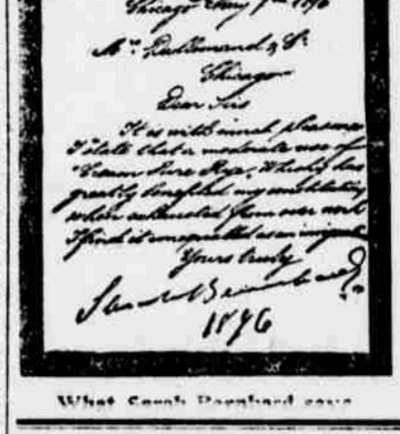 Chicago May 7th 1896
Mr. Dallemand & Co
Chicago
Dear Sirs
It is with much pleasure
I state that a moderate use of
"Cream Pure Rye" Whisky has
greatly benefited my constitution
when exhausted from over work
I find it unequalled as an
Yours truly
Sarah Bernhardt
1896
What Sarah Bernhard says